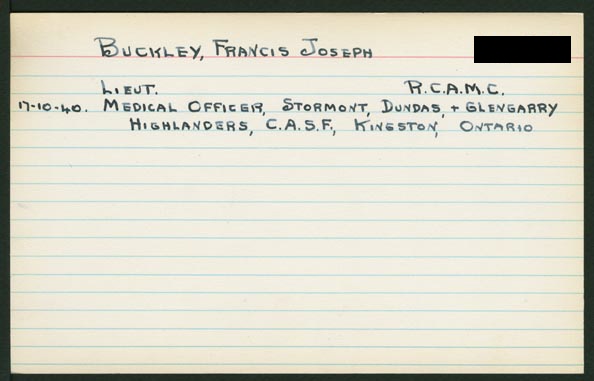 BUCKLEY, FRANCIS JOSEPH
LIEUT. R.C.A.M.C.
17-10-40. MEDICAL OFFICER, STORMONT, DUNDAS, + GLENGARRY
HIGHLANDERS, C.A.S.F., KINGSTON, ONTARIO